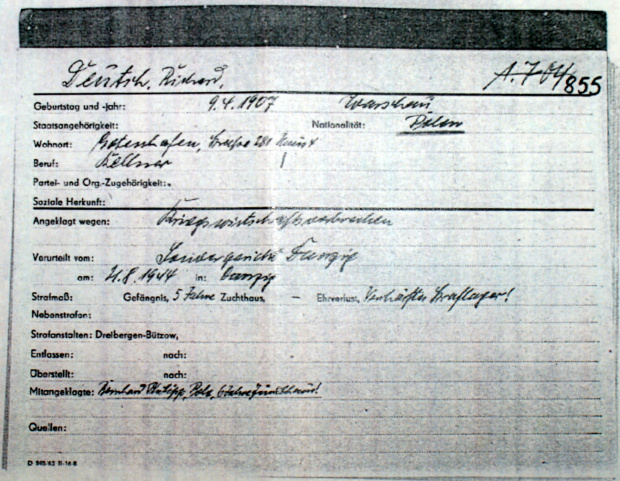 Deutsch, Richard, 855
Geburtstag und -jahr: 9.4.1907 Warschau
Staatsangehörigkeit: Nationalität: Polen
Wohnort: Gotenhafen, 281
Beruf: Kellner
Partei- und Org.-Zugehörigkeit:
Soziale Herkunft:
Angeklagt wegen: Kriegswirtschaftsverbrechen
Verurteilt vom: Sondergericht Danzig
am: 8.1944 in: Danzig
Strafmaß: Gefängnis, 5 Jahre Zuchthaus, – Ehrverlust, Verschärftes Straflager!
Nebenstrafen:
Strafanstalten: Dreibergen-Bützow,
Entlassen: nach:
Überstellt: nach:
Mitangeklagte: Bernhard Philipp, Pole, 6 Jahre
Quellen: